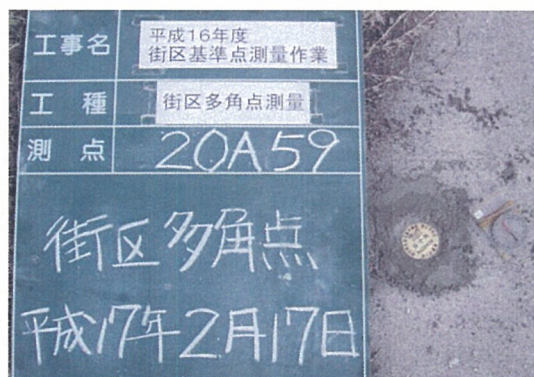 工事名 平成16年度
街区基準点測量作業
工種 街区多角点測量
測点 20A59
街区多角点
平成17年2月17日